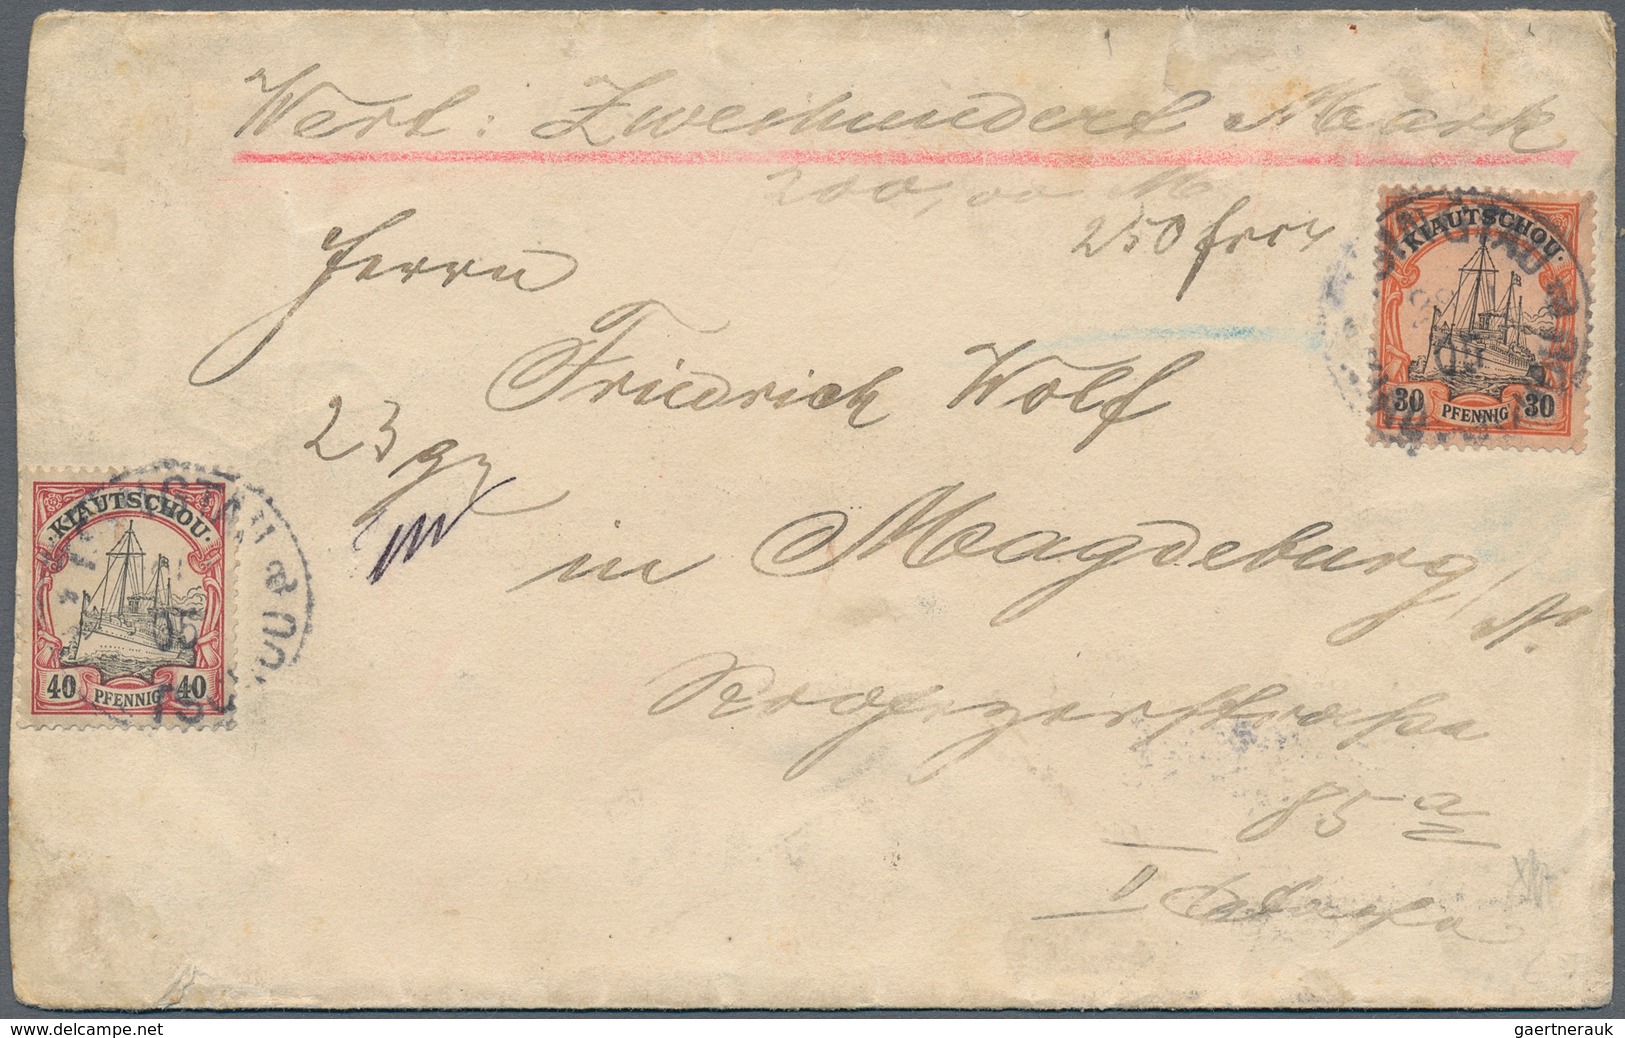 Wert: Zweihundert Mark
200,00 M
250 frcs
Herrn
Friedrich Wolf
23 gr
in Magdeburg/N.
85 a
II Etage
KIAUTSCHOU
30 PFENNIG 30
TSINGTAU
KIAUTSCHOU
40 PFENNIG 40
TSINGTAU
05
www.delcampe.net
gaertnerauk